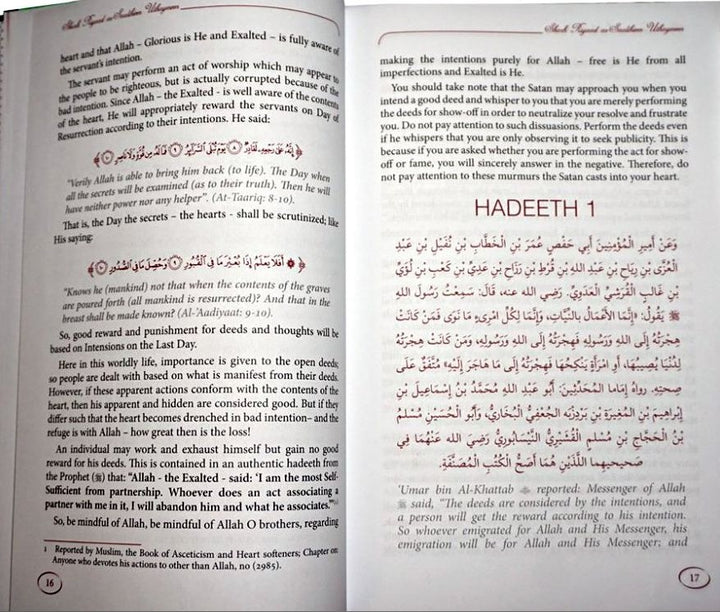 heart and that Allah – Glorious is He and Exalted – is fully aware of
the servant's intention.
The servant may perform an act of worship which may appear to
the people to be righteous, but is actually corrupted because of the
bad intention. Since Allah – the Exalted - is well aware of the contents
of the heart, He will appropriately reward the servants on Day of
Resurrection according to their intentions. He said:
﴿إِنَّهُ عَلَى رَجْعِهِ لَقَادِرٌ ٨ يَوْمَ تُبْلَى السَّرَائِرُ ٩ فَمَا لَهُ مِن قُوَّةٍ وَلَا نَاصِرٍ ١٠﴾
"Verily Allah is able to bring him back (to life). The Day when
all the secrets will be examined (as to their truth). Then he will
have neither power nor any helper". (At-Taariq: 8-10).
That is, the Day the secrets – the hearts - shall be scrutinized; like
His saying:
﴿۞ أَفَلَا يَعْلَمُ إِذَا بُعْثِرَ مَا فِي الْقُبُورِ ٩ وَحُصِّلَ مَا فِي الصُّدُورِ ١٠﴾
"Knows he (mankind) not that when the contents of the graves
are poured forth (all mankind is resurrected)? And that in the
breast shall be made known? (Al-'Aadiyaat: 9-10).
So, good reward and punishment for deeds and thoughts will be
based on Intensions on the Last Day.
Here in this worldly life, importance is given to the open deeds;
so people are dealt with based on what is manifest from their deeds.
However, if these apparent actions conform with the contents of the
heart, then his apparent and hidden are considered good. But if they
differ such that the heart becomes drenched in bad intention– and the
refuge is with Allah – how great then is the loss!
An individual may work and exhaust himself but gain no good
reward for his deeds. This is contained in an authentic hadeeth from
the Prophet (ﷺ) that: "Allah - the Exalted - said: 'I am the most Self-
Sufficient from partnership. Whoever does an act associating a
partner with me in it, I will abandon him and what he associates."
So, be mindful of Allah, be mindful of Allah O brothers, regarding
1 Reported by Muslim, the Book of Asceticism and Heart softeners; Chapter on
Anyone who devotes his actions to other than Allah, no (2985).
16
making the intentions purely for Allah – free is He from all
imperfections and Exalted is He.
You should take note that the Satan may approach you when you
intend a good deed and whisper to you that you are merely performing
the deeds for show-off in order to neutralize your resolve and frustrate
you. Do not pay attention to such dissuasions. Perform the deeds even
if he whispers that you are only observing it to seek publicity. This is
because if you are asked whether you are performing the act for show-
off or fame, you will sincerely answer in the negative. Therefore, do
not pay attention to these murmurs the Satan casts into your heart.
HADEETH 1
وَعَنْ أَمِيرِ الْمُؤْمِنِينَ أَبِي حَفْصٍ عُمَرَ بْنِ الْخَطَّابِ بْنِ نُفَيْلِ بْنِ عَبْدِ
الْعُزَّى بْنِ رِيَاحِ بْنِ عَبْدِ اللهِ بْنِ قُرْطِ بْنِ رَزَاحِ بْنِ عَدِيِّ بْنِ كَعْبِ بْنِ لُؤَيِّ
بْنِ غَالِبٍ الْقُرَشِيِّ الْعَدَوِيِّ. رَضِيَ الله عنه، قَالَ: سَمِعْتُ رَسُولَ اللهِ
ﷺ يَقُولُ: «إِنَّمَا الْأَعْمَالُ بِالنِّيَّاتِ، وَإِنَّمَا لِكُلِّ امْرِئٍ مَا نَوَى فَمَنْ كَانَتْ
هِجْرَتُهُ إِلَى اللهِ وَرَسُولِهِ فَهِجْرَتُهُ إِلَى اللهِ وَرَسُولِهِ، وَمَنْ كَانَتْ هِجْرَتُهُ
لِدُنْيَا يُصِيبُهَا، أَوِ امْرَأَةٍ يَنْكِحُهَا فَهِجْرَتُهُ إِلَى مَا هَاجَرَ إِلَيْهِ» مُتَّفَقٌ عَلَى
صِحتِهِ. رواهُ إِمَاما المُحَدِّثِينَ: أَبو عَبْدِ اللهِ مُحَمَّدُ بْنُ إِسْمَاعِيلَ بْنِ
إِبْراهِيمَ بْنِ الْمُغِيرَةِ بْنِ بَرْدِزْبَه الْجُعْفِيُّ الْبُخَارِيُّ، وَأَبُو الْحُسَيْنِ مُسْلمُ
بْنُ الْحَجَّاجِ بْنِ مُسْلمٍ الْقُشَيْرِيُّ النَّيْسَابُورِيُّ رَضِيَ الله عَنْهُمَا فِي
صَحِيحيهِما اللَّذَيْنِ هُمَا أَصَحُّ الْكُتُبِ الْمُصَنَّفَةِ.
'Umar bin Al-Khattab reported: Messenger of Allah
ﷺ said, "The deeds are considered by the intentions, and
a person will get the reward according to his intention.
So whoever emigrated for Allah and His Messenger, his
emigration will be for Allah and His Messenger; and
17